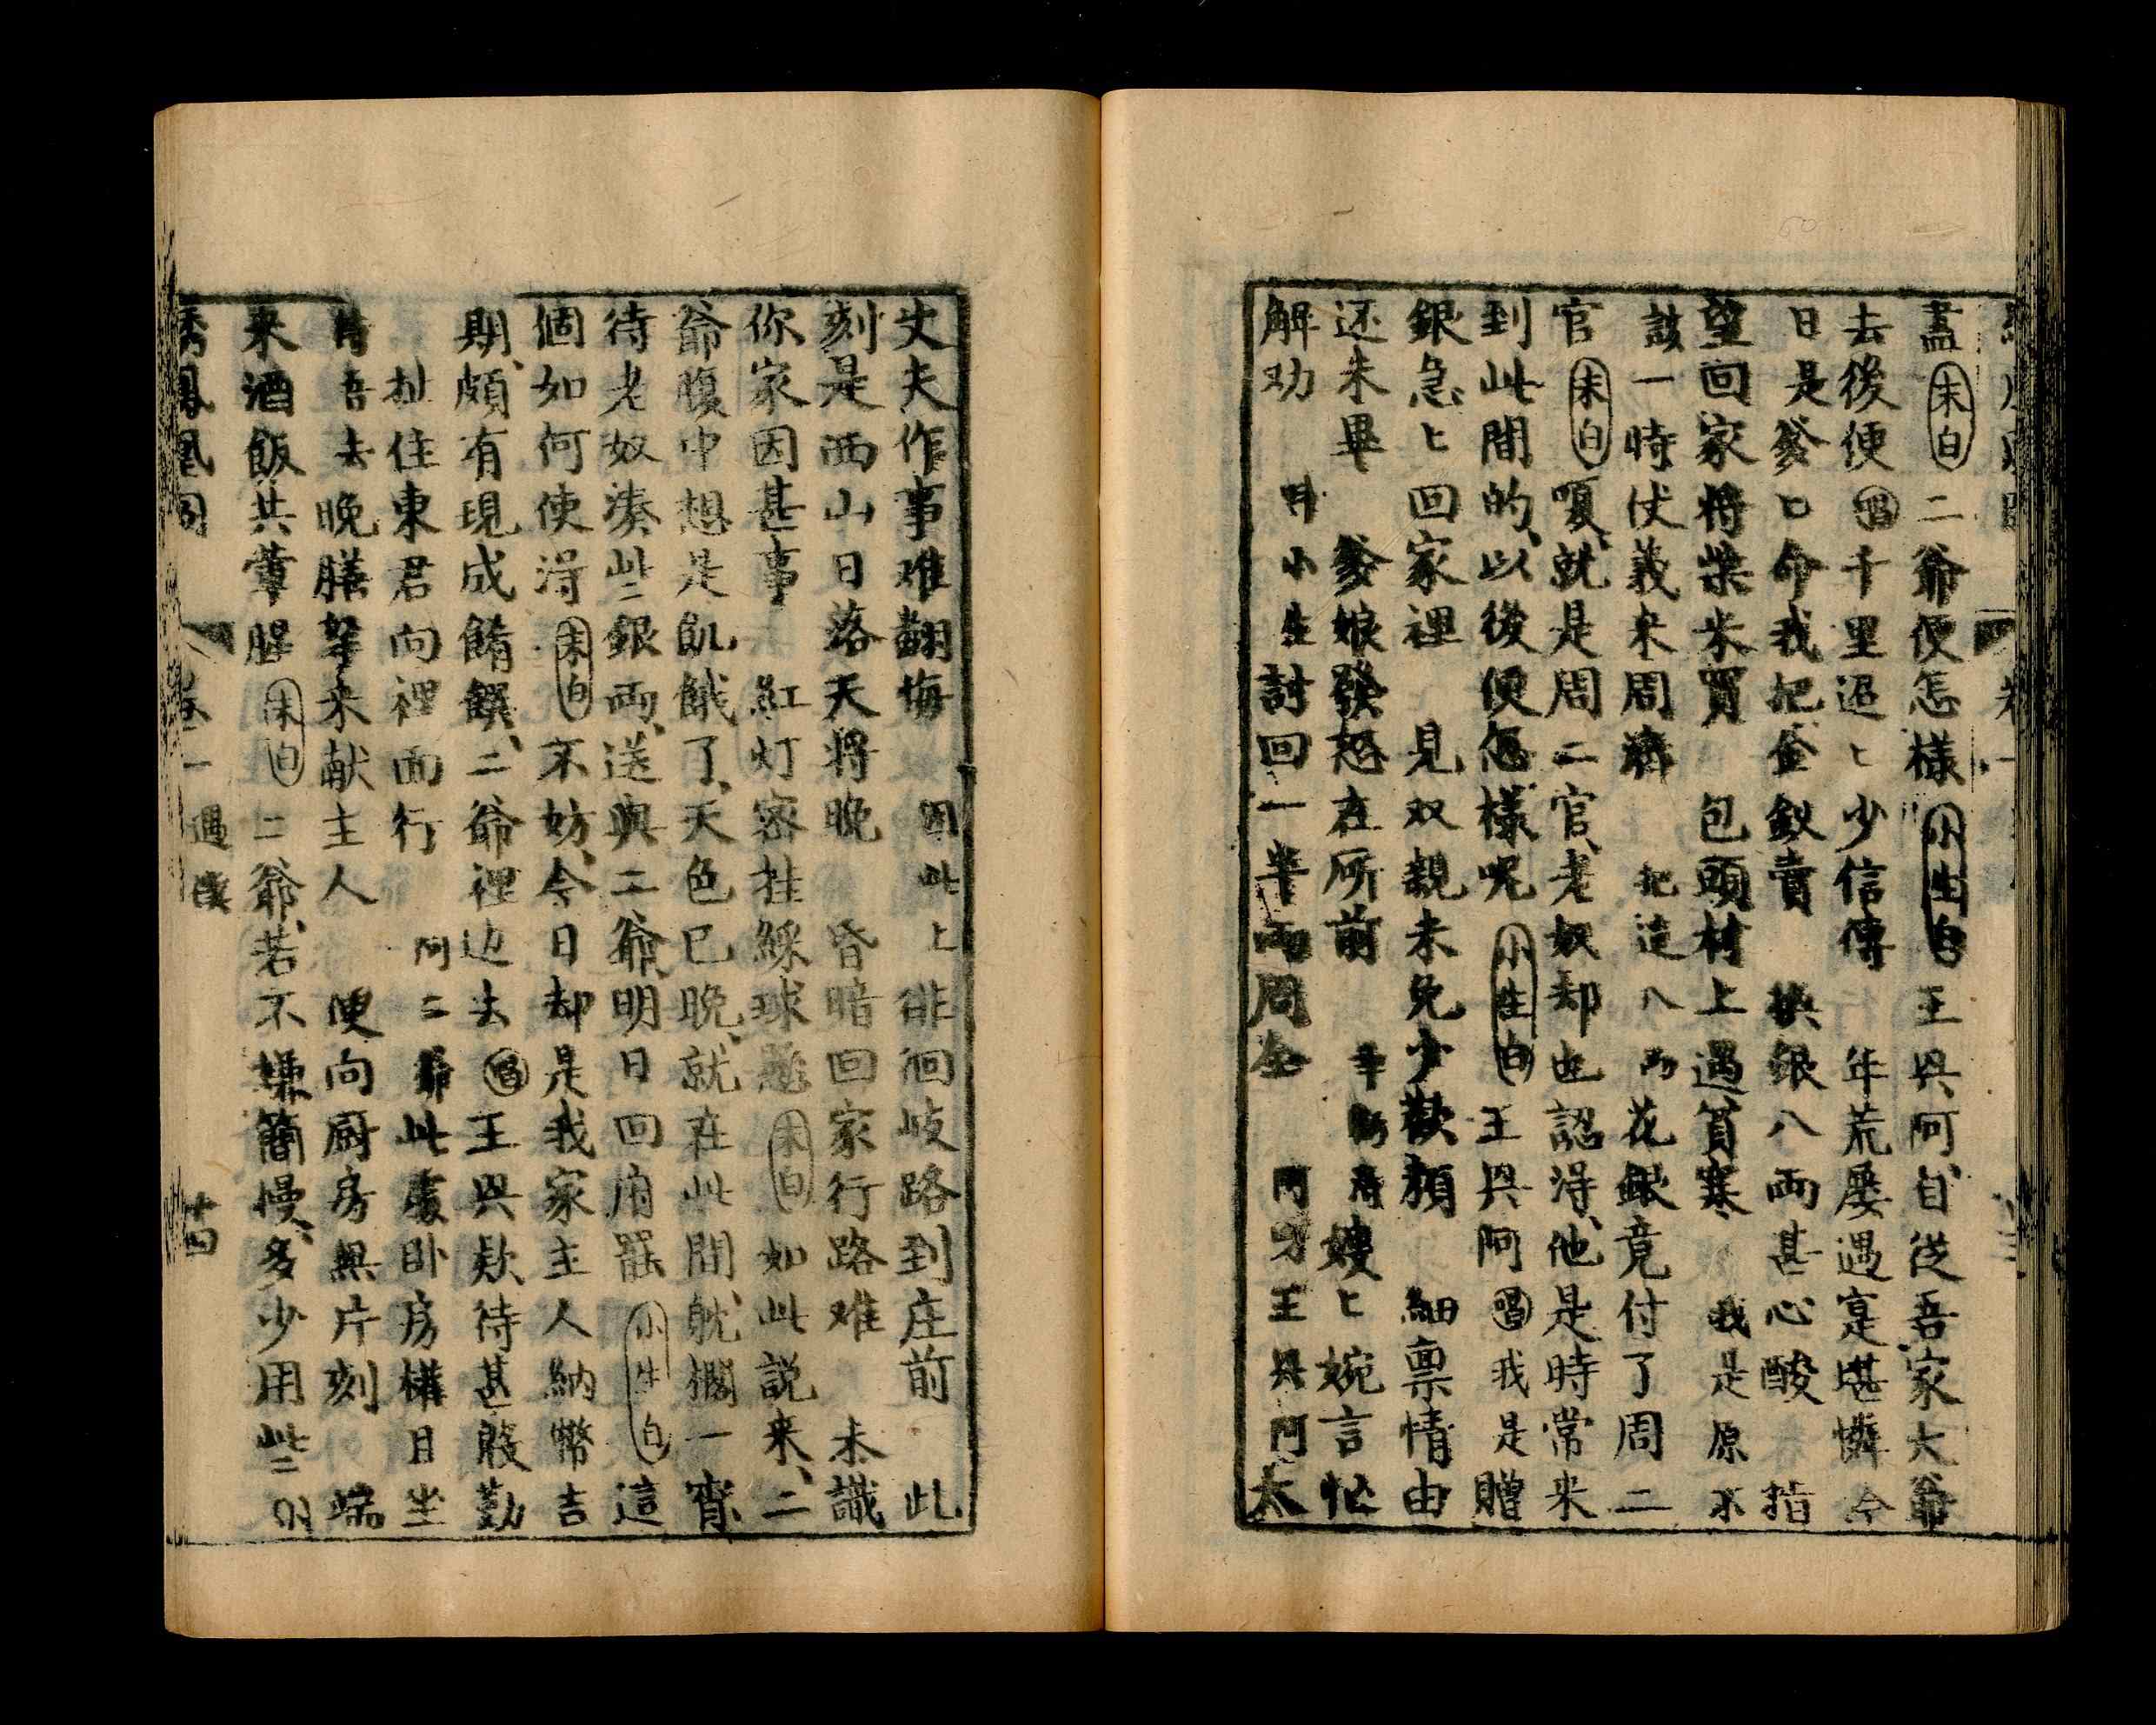 盡末白二爺便怎樣小生白王興阿自從吾家大爺
去後便唱千里迢匕少信傳 年荒屡遇寔堪憐 今
日是爹匕命我把金釵賣 换銀八両甚心酸 指
望回家将柴米買 包頭村上遇貧寒 我是原不
該一時仗義来周濟 把這八両花銀竟付了周二
官末白嗄就是周二官老奴却也認得他是時常来
到此間的以後便怎樣呢小生白王興阿唱我是贈
銀急匕回家裡 見双親未免少歡顏 細禀情由
还未畢 爹娘發怒在所前 幸嫂匕婉言忙
解劝 小生討回一半両周全 阿王興阿太
丈夫作事难翻悔 因此上徘徊岐路到庄前 此
刻是西山日落天将晚 昏暗回家行路难 未識
你家因甚事 紅灯密挂綵球懸末白如此説来二
爺腹中想是飢餓了天色已晚就在此間躭擱一宵
待老奴湊些銀両送與二爺明日回府罷小生白這
個如何使得末白不妨今日却是我家主人納幣吉
期頗有現成餚饌二爺裡边去唱王興欵待甚殷勤
扯住東君向裡面行 阿二爺此處卧房權且坐
待吾去晚膳拏来献主人 便向厨房無片刻 端
来酒飯共葷腥末白二爺若不嫌簡慢多少用些
繡鳳凰 卷一 遇僕 十四